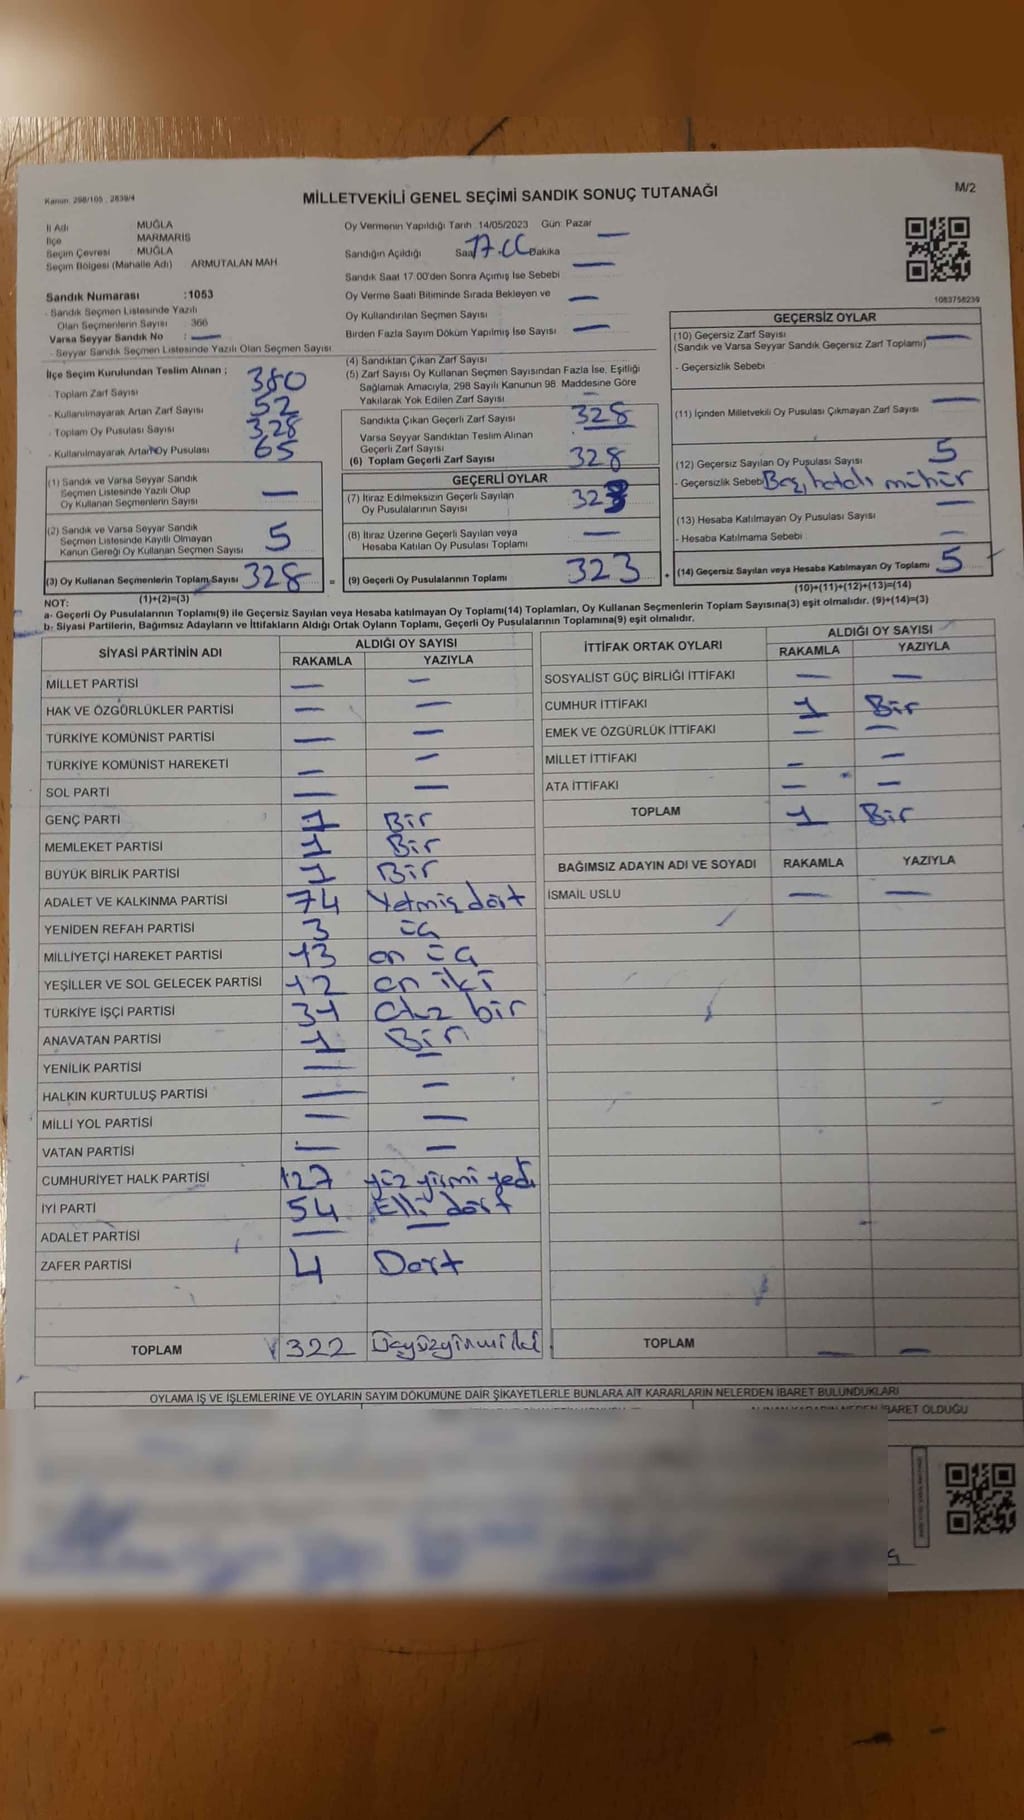 Kanun: 298/105 , 2839/4
MİLLETVEKİLİ GENEL SEÇİMİ SANDIK SONUÇ TUTANAĞI
M/2
İl Adı MUĞLA
İlçe MARMARİS
Seçim Çevresi MUĞLA
Seçim Bölgesi (Mahalle Adı) ARMUTALAN MAH.
Sandık Numarası :1053
- Sandık Seçmen Listesinde Yazılı
Olan Seçmenlerin Sayısı : 366
Varsa Seyyar Sandık No : —
- Seyyar Sandık Seçmen Listesinde Yazılı Olan Seçmen Sayısı
Oy Vermenin Yapıldığı Tarih 14/05/2023 Gün: Pazar
Sandığın Açıldığı Saat 17.00 Dakika —
Sandık Saat 17:00'den Sonra Açımış İse Sebebi —
Oy Verme Saati Bitiminde Sırada Bekleyen ve
Oy Kullandırılan Seçmen Sayısı —
Birden Fazla Sayım Döküm Yapılmış İse Sayısı —
1083758239
İlçe Seçim Kurulundan Teslim Alınan ;
- Toplam Zarf Sayısı 380
- Kullanılmayarak Artan Zarf Sayısı 52
- Toplam Oy Pusulası Sayısı 328
- Kullanılmayarak Artan Oy Pusulası 65
(1) Sandık ve Varsa Seyyar Sandık
Seçmen Listesinde Yazılı Olup
Oy Kullanan Seçmenlerin Sayısı —
(2) Sandık ve Varsa Seyyar Sandık
Seçmen Listesinde Kayıtlı Olmayan
Kanun Gereği Oy Kullanan Seçmen Sayısı 5
(3) Oy Kullanan Seçmenlerin Toplam Sayısı 328 =
(1)+(2)=(3)
(4) Sandıktan Çıkan Zarf Sayısı
(5) Zarf Sayısı Oy Kullanan Seçmen Sayısından Fazla İse, Eşitliği
Sağlamak Amacıyla, 298 Sayılı Kanunun 98. Maddesine Göre
Yakılarak Yok Edilen Zarf Sayısı —
Sandıkta Çıkan Geçerli Zarf Sayısı 328
Varsa Seyyar Sandıktan Teslim Alınan
Geçerli Zarf Sayısı —
(6) Toplam Geçerli Zarf Sayısı 328
GEÇERLİ OYLAR
(7) İtiraz Edilmeksizin Geçerli Sayılan
Oy Pusulalarının Sayısı 323
(8) İtiraz Üzerine Geçerli Sayılan veya
Hesaba Katılan Oy Pusulası Toplamı —
(9) Geçerli Oy Pusulalarının Toplamı 323
GEÇERSİZ OYLAR
(10) Geçersiz Zarf Sayısı —
(Sandık ve Varsa Seyyar Sandık Geçersiz Zarf Toplamı)
- Geçersizlik Sebebi
(11) İçinden Milletvekili Oy Pusulası Çıkmayan Zarf Sayısı —
(12) Geçersiz Sayılan Oy Pusulası Sayısı 5
- Geçersizlik Sebebi hatalı mühür
(13) Hesaba Katılmayan Oy Pusulası Sayısı —
- Hesaba Katılmama Sebebi —
(14) Geçersiz Sayılan veya Hesaba Katılmayan Oy Toplamı 5
(10)+(11)+(12)+(13)=(14)
NOT:
a- Geçerli Oy Pusulalarının Toplamı(9) ile Geçersiz Sayılan veya Hesaba katılmayan Oy Toplamı(14) Toplamları, Oy Kullanan Seçmenlerin Toplam Sayısına(3) eşit olmalıdır. (9)+(14)=(3)
b- Siyasi Partilerin, Bağımsız Adayların ve İttifakların Aldığı Ortak Oyların Toplamı, Geçerli Oy Pusulalarının Toplamına(9) eşit olmalıdır.
SİYASİ PARTİNİN ADI ALDIĞI OY SAYISI
RAKAMLA YAZIYLA
MİLLET PARTİSİ — —
HAK VE ÖZGÜRLÜKLER PARTİSİ — —
TÜRKİYE KOMÜNİST PARTİSİ — —
TÜRKİYE KOMÜNİST HAREKETİ — —
SOL PARTİ — —
GENÇ PARTİ 1 Bir
MEMLEKET PARTİSİ 1 Bir
BÜYÜK BİRLİK PARTİSİ 1 Bir
ADALET VE KALKINMA PARTİSİ 74 Yetmiş dört
YENİDEN REFAH PARTİSİ 3 üç
MİLLİYETÇİ HAREKET PARTİSİ 13 on üç
YEŞİLLER VE SOL GELECEK PARTİSİ 12 on iki
TÜRKİYE İŞÇİ PARTİSİ 31 otuz bir
ANAVATAN PARTİSİ 1 Bir
YENİLİK PARTİSİ — —
HALKIN KURTULUŞ PARTİSİ — —
MİLLİ YOL PARTİSİ — —
VATAN PARTİSİ — —
CUMHURİYET HALK PARTİSİ 127 yüz yirmi yedi
İYİ PARTİ 54 Elli dört
ADALET PARTİSİ — —
ZAFER PARTİSİ 4 Dört
TOPLAM 322 Üçyüzyirmi iki
İTTİFAK ORTAK OYLARI ALDIĞI OY SAYISI
RAKAMLA YAZIYLA
SOSYALİST GÜÇ BİRLİĞİ İTTİFAKI — —
CUMHUR İTTİFAKI 1 Bir
EMEK VE ÖZGÜRLÜK İTTİFAKI — —
MİLLET İTTİFAKI — —
ATA İTTİFAKI — —
TOPLAM 1 Bir
BAĞIMSIZ ADAYIN ADI VE SOYADI RAKAMLA YAZIYLA
İSMAİL USLU — —
TOPLAM — —
OYLAMA İŞ VE İŞLEMLERİNE VE OYLARIN SAYIM DÖKÜMÜNE DAİR ŞİKAYETLERLE BUNLARA AİT KARARLARIN NELERDEN İBARET BULUNDUKLARI
İBARET OLDUĞU